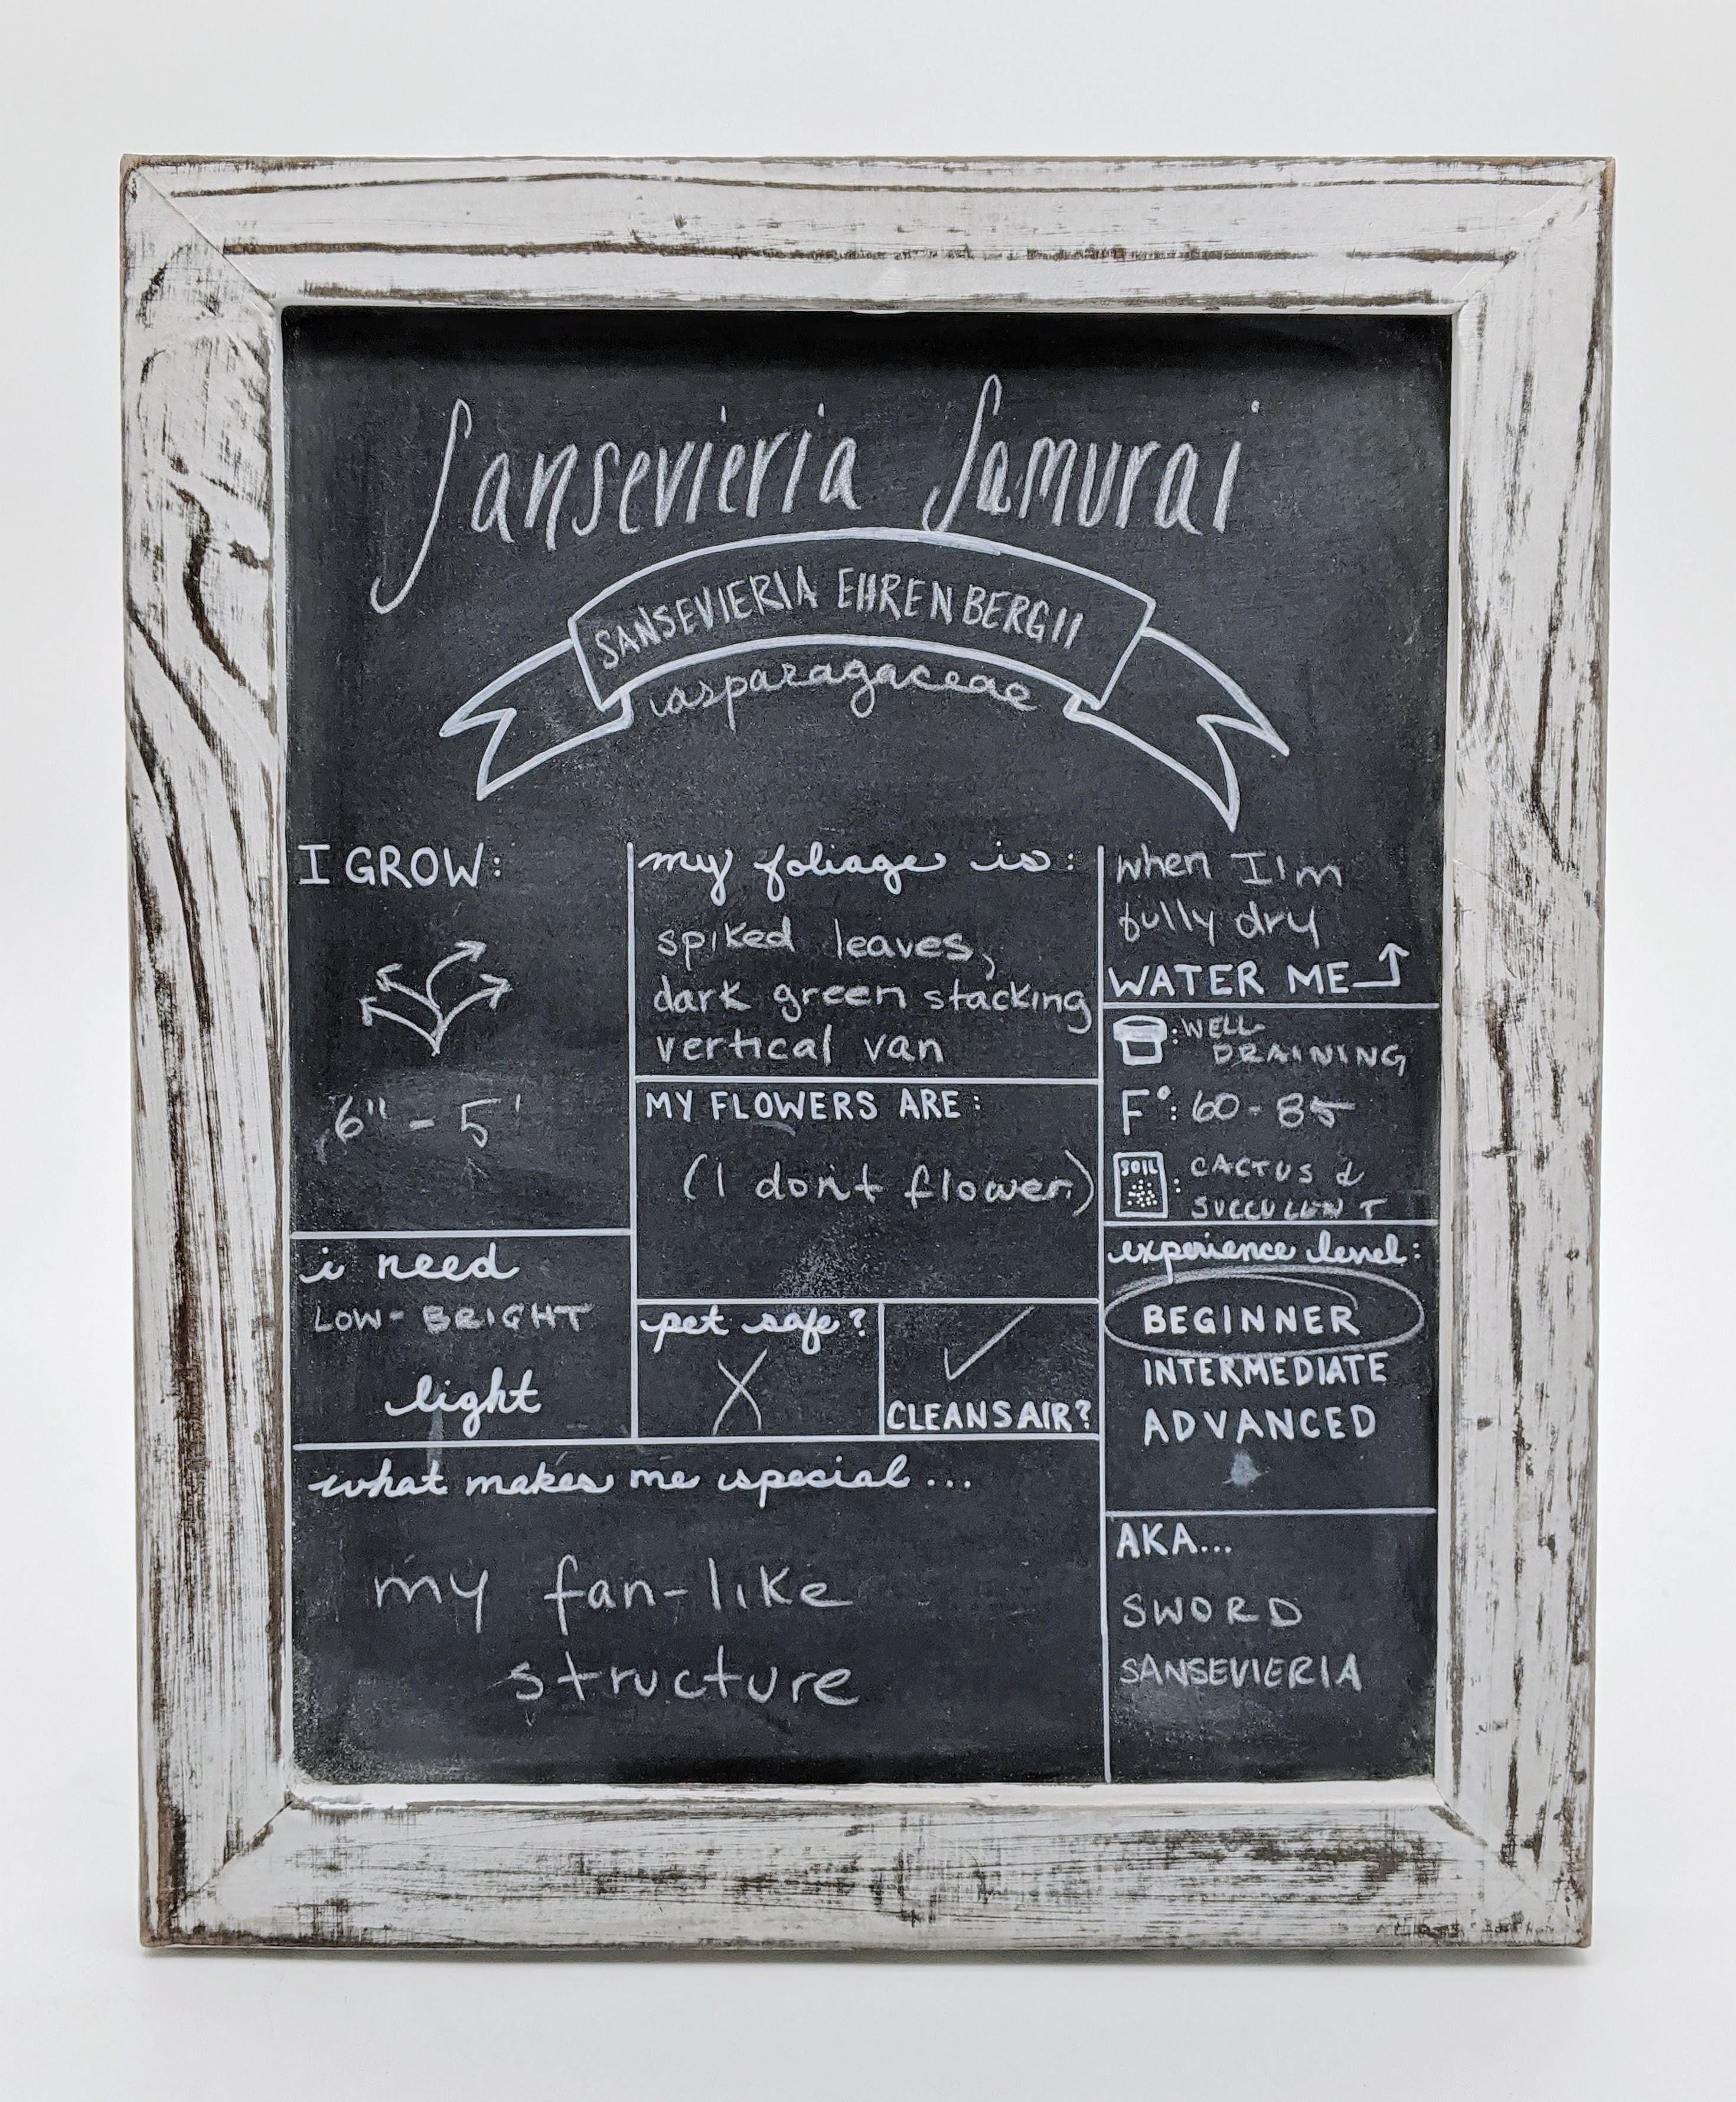 Sansevieria Samurai
SANSEVIERIA EHRENBERGII
asparagaceae
I GROW:
6" - 5'
i need
LOW- BRIGHT
light
my foliage is:
spiked leaves,
dark green stacking
vertical van
MY FLOWERS ARE:
(I don't flower)
pet safe?
X
✓
CLEANS AIR?
when I'm
fully dry
WATER ME
:WELL-
DRAINING
F°: 60-85
SOIL : CACTUS &
SUCCULENT
experience level:
BEGINNER
INTERMEDIATE
ADVANCED
what makes me special...
my fan-like
structure
AKA...
SWORD
SANSEVIERIA